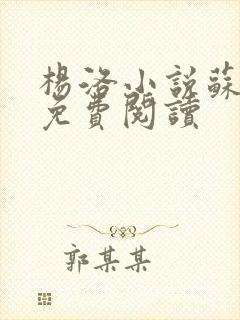 楊洛小說蘇
免費閱讀
郭某某